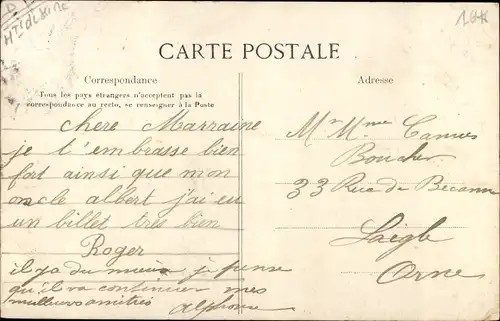 CARTE POSTALE
Correspondance
Tous les pays étrangers n'acceptent pas la
correspondance au recto, se renseigner à la Poste
chere Marraine
je t'embrasse bien
fort ainsi que mon
oncle albert j'ai eu
un billet tres bien
Roger
il y a du mieux je pense
qu'il va continuer mes
meilleurs amitiés
alphonse
Adresse
Mr Mme Camus
Boucher
33 Rue de Becanne
Laigle
Orne